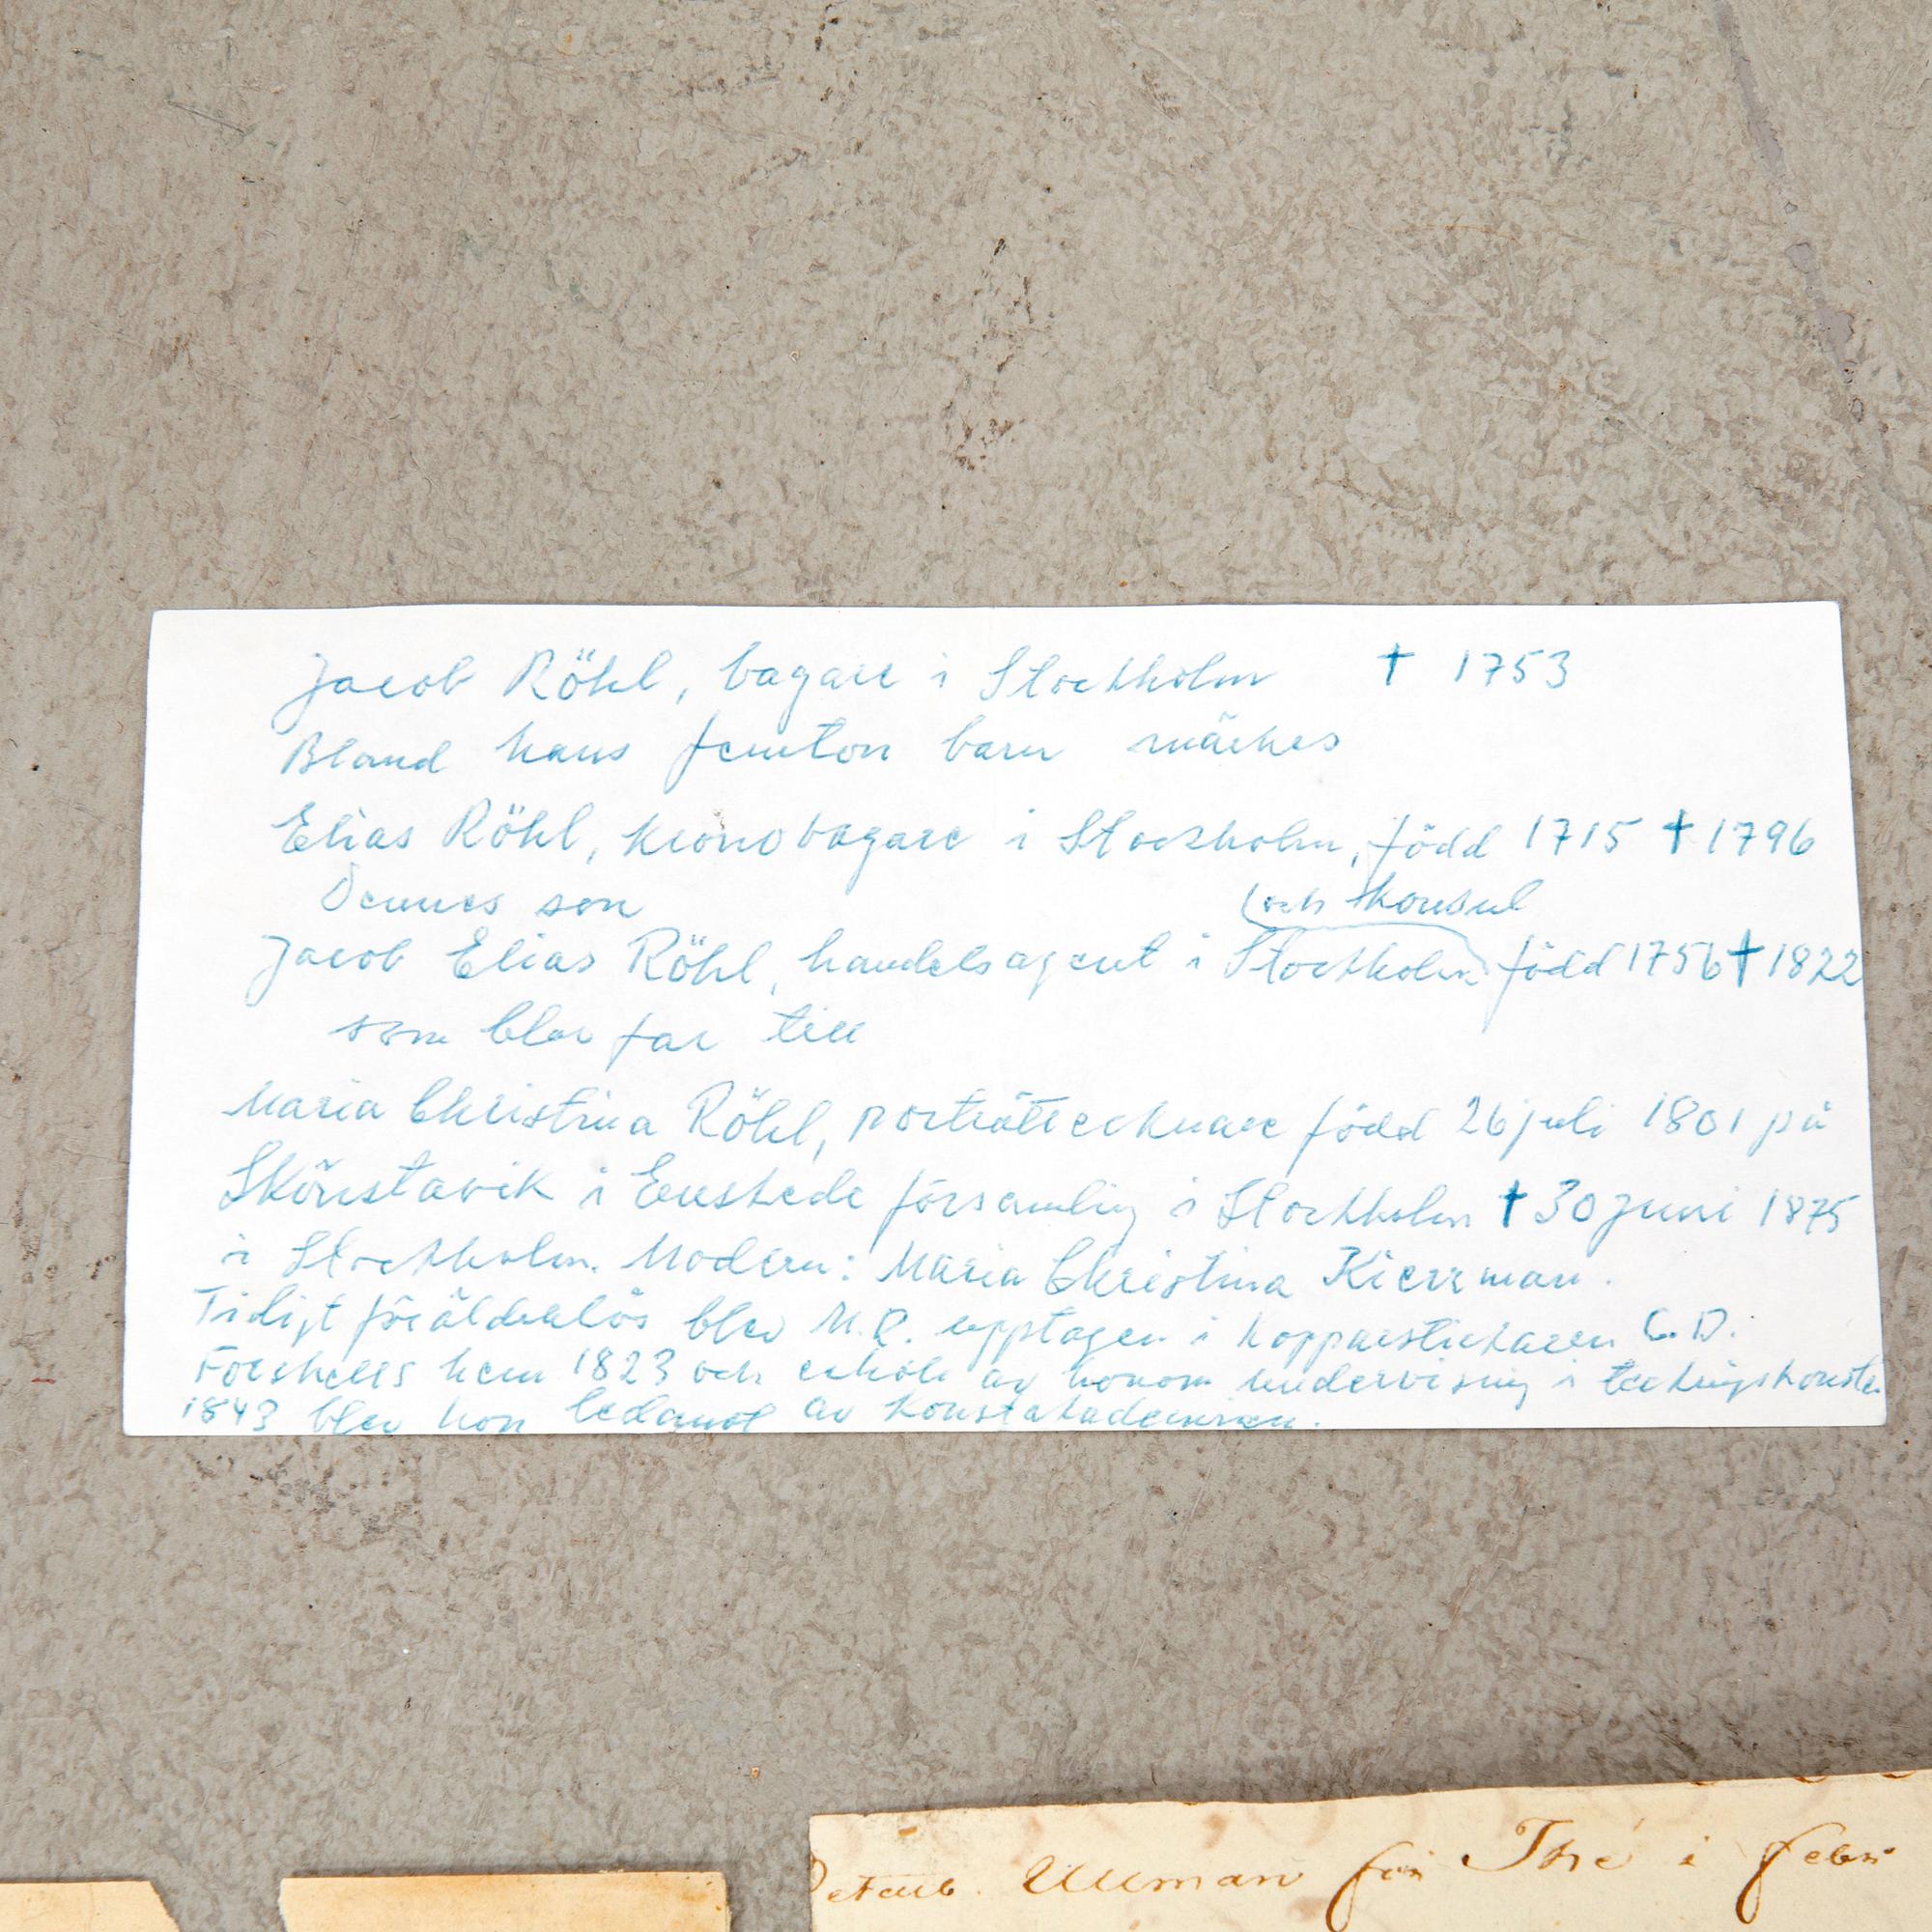 Jacob Röhl, bagare i Stockholm † 1753
Bland hans femton barn märkes
Elias Röhl, kronobagare i Stockholm, född 1715 † 1796
Dennes son
(och konsul
Jacob Elias Röhl, handelsagent i Stockholm född 1756 † 1822
som blev far till
Maria Christina Röhl, porträttecknare född 26 juli 1801 på
Skönstavik i Enskede församling i Stockholm † 30 juni 1875
i Stockholm. Modern: Maria Christina Kierrman.
Tidigt föräldralös blev M.R. upptagen i kopparstickaren C.D.
Forshells hem 1823 och erhöll av honom undervisning i teckningskonsten
1843 blev hon ledamot av Konstakademien.
Ullman för Thé i febr